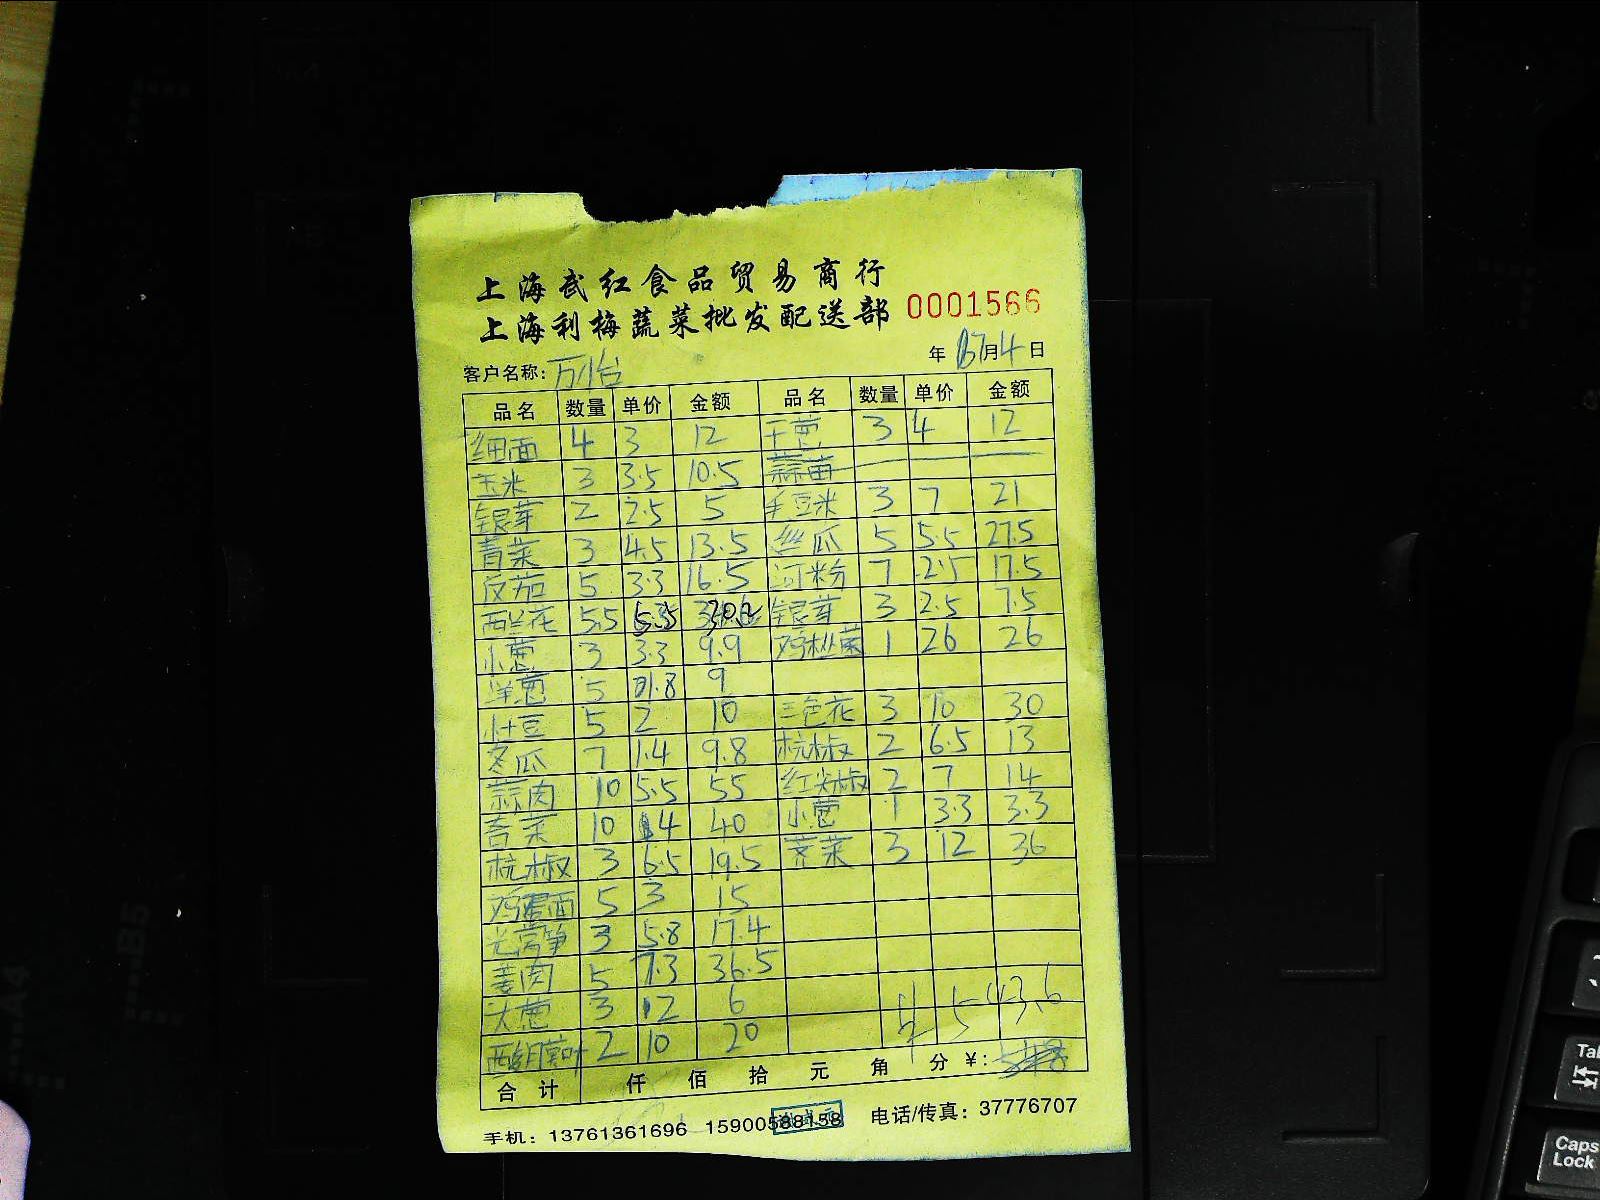 上海武红食品贸易商行
上海利梅蔬菜批发配送部 0001566
年 月4日
客户名称: 万怡
品名 数量 单价 金额 品名 数量 单价 金额
细面 4 3 12 干葱 3 4 12
玉米 3 3.5 10.5 蒜苗
银芽 2 2.5 5 毛豆米 3 7 21
青菜 3 4.5 13.5 丝瓜 5 5.5 27.5
反茄 5 3.3 16.5 河粉 7 2.5 17.5
西兰花 5.5 银芽 3 2.5 7.5
小葱 3 3.3 9.9 鸡枞菌 1 26 26
洋葱 5 1.8 9
土豆 5 2 10 三色花 3 10 30
冬瓜 7 1.4 9.8 杭椒 2 6.5 13
蒜肉 10 5.5 55 红尖椒 2 7 14
10 4 40 小葱 1 3.3 3.3
杭椒 3 6.5 19.5 荠菜 3 12 36
鸡蛋面 5 3 15
光莴笋 3 5.8 17.4
姜肉 5 7.3 36.5
大葱 3 2 6
2 10 20
543.6
合计 仟 佰 拾 元 角 分 ¥:
手机: 13761361696 15900588158 电话/传真: 37776707